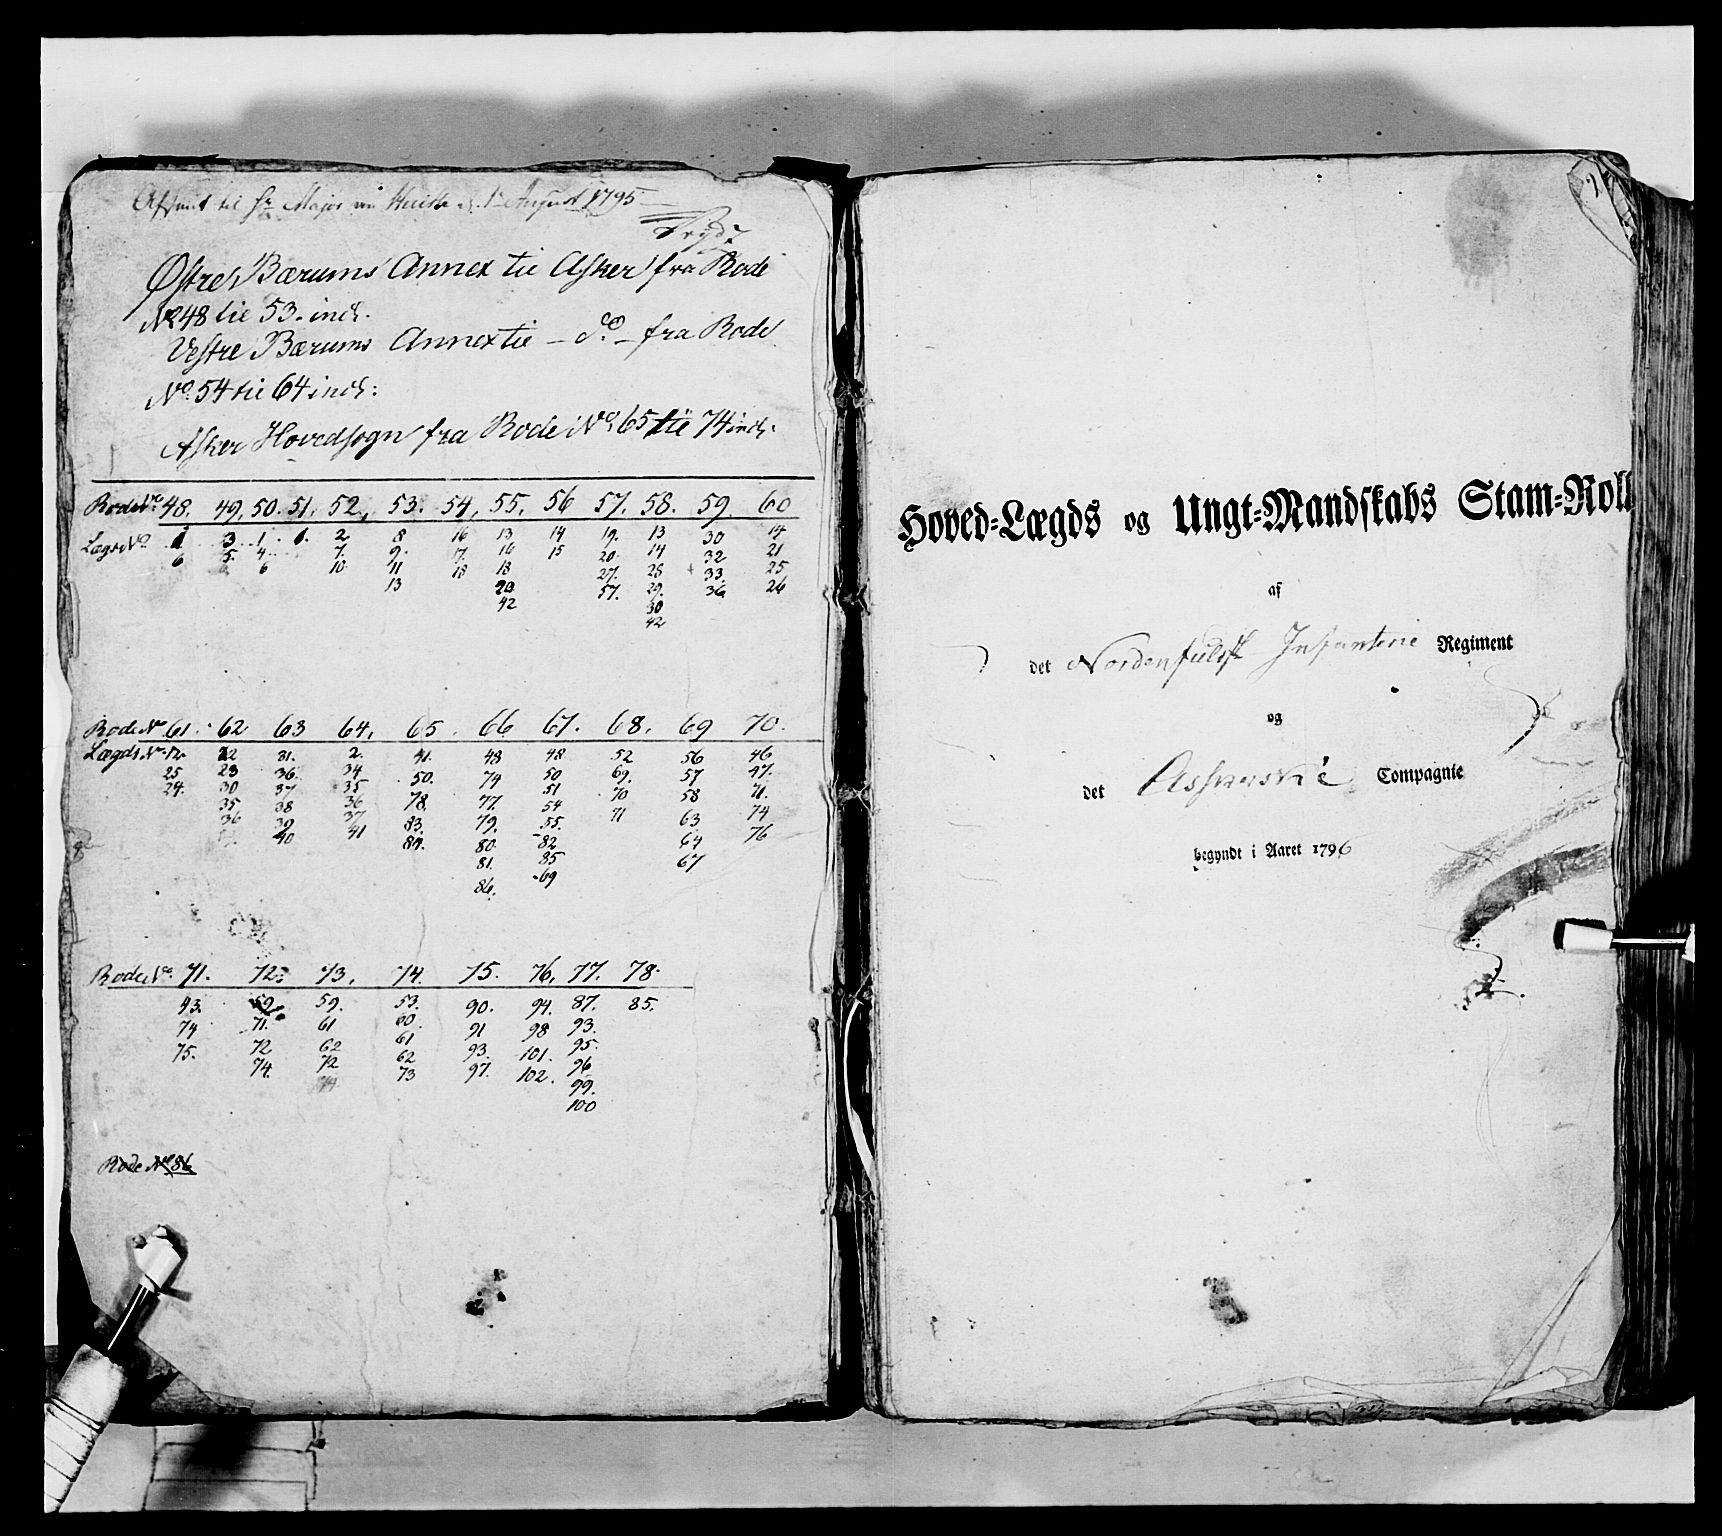 til Hr Major August 1795
Østre Bærums Annex til Asker fra Rode
No 48 til 53. incl.
Vestre Bærums Annex til — do — fra Rode
No. 54 til 64 incl:
Asker Hovedsogn fra Rode No. 65 til 74 incl.
Rode No. 48. 49. 50. 51. 52. 53. 54. 55. 56 57. 58. 59. 60
Lægs No. 1 3 1 1 2 8 16 13 14 19. 13 30 14
6 5. 4 7. 9. 17. 16 15 20. 14 32 21
6 10. 11 18 18 27. 28 33. 25
13 20 57. 29. 36 26
42 30
42
Rode No. 61. 62 63 64. 65. 66 67. 68. 69 70.
Lægds No. 12. 22 31. 2. 41. 48 48 52 56 46
25 23 36. 34 50. 74 50 69. 57. 47.
24. 30 37 35 78. 77. 51 70 58 71.
35 38 36 83. 79. 54 71 63 74
36 39 37 84. 80. 55. 64 76
40 41 81. 82 67
86. 85
69
Rode No. 71. 72. 73. 74. 75. 76. 77. 78.
43. 59 59. 53. 90. 94. 87. 85.
74 71. 61 60. 91 98 93.
75. 72 62 61 93. 101. 95.
74. 72 62 97. 102. 96
74 73 99.
100
Rode No. 86
Hoved-Lægds og Ungt-Mandskabs Stam-Roll
af
det Nordenfieldske Infanterie Regiment
og
det Askerske Compagnie
begyndt i Aaret 1796